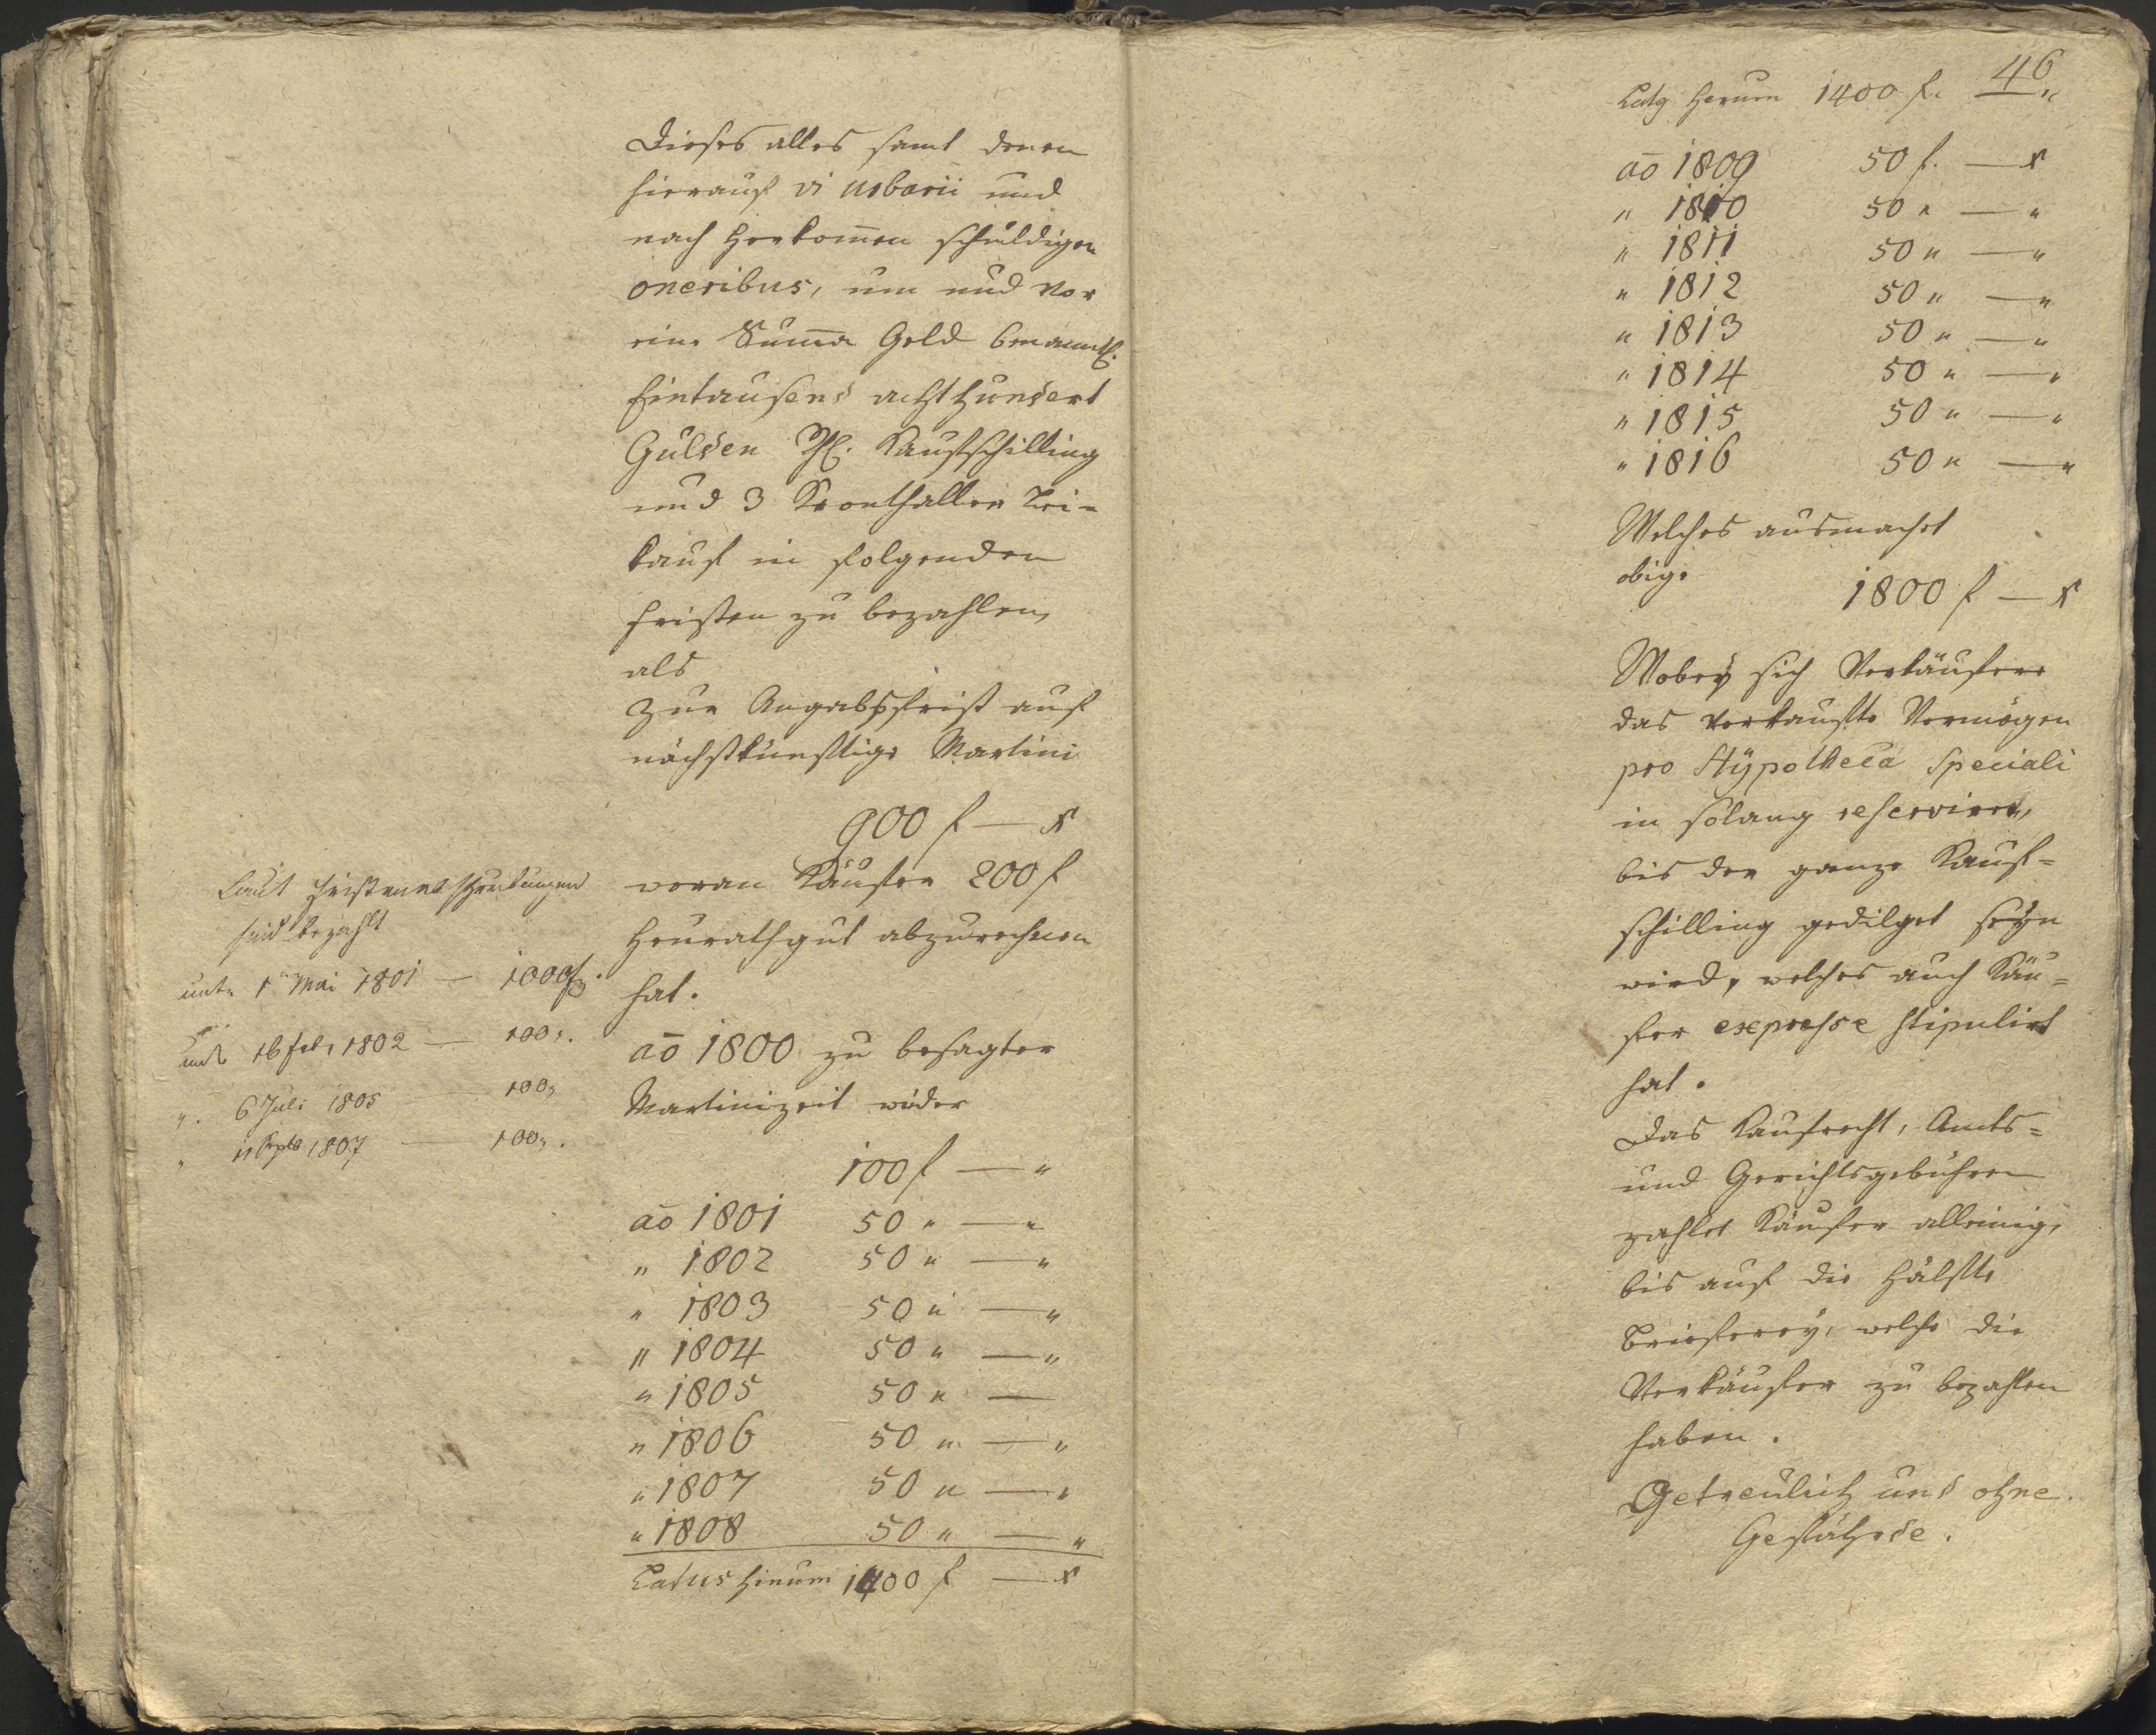 Dieses alles samt denen
hierauf vi urbarii und
nach Herkom̄en schuldigen
oneribus, um und vor
eine Sum̄a Geld benantl.
Eintausend achthundert
Gulden Kaufschilling
und 3 Kronthaller Lei-
kauf in folgenden
fristen zu bezahlen,
als
Zur Angabsfrist auf
nächstkünftige Martini
900 f — x
woran Käufer 200 f
Heurathgut abzurechnen
hat.
aō 1800 zu besagter
Martinizeit wider
100 f — "
aō 1801 50 " — "
" 1802 50 " — "
" 1803 50 " — "
" 1804 50 " — "
" 1805 50 " —
" 1806 50 " — "
" 1807 50 " — "
" 1808 50 " — "
Latus hinum 1400 f — x
Laut
sind bezahlt
unter 1ten Mai 1801 — 1000 f.
unter 16 feb. 1802 — 100 ".
". 6 Juli 1805 — 100 "
" 11 Septb 1807 — 100 ".
46
Latg herum 1400 f. — "
aō 1809 50 f. — x
" 1810 50 " — "
" 1811 50 " — "
" 1812 50 " — "
" 1813 50 " — "
" 1814 50 " — "
" 1815 50 " — "
" 1816 50 " — "
Welches ausmachet
obige
1800 f — x
Wobey sich Verkäufere
das verkaufte Vermögen
pro Hÿpotheca speciali
in solang reserviren,
bis der ganze Kauf=
schilling gedilget seyn
wird, welches auch Käu=
fer expresse stipulirt
hat.
Das Kaufrecht, Amts=
und Gerichtsgebühren
zahlet Käufer alleinig,
bis auf die Hälfte
Brieferey, welche die
Verkäufer zu bezahlen
haben.
Getreulich und ohne
Gefährde.